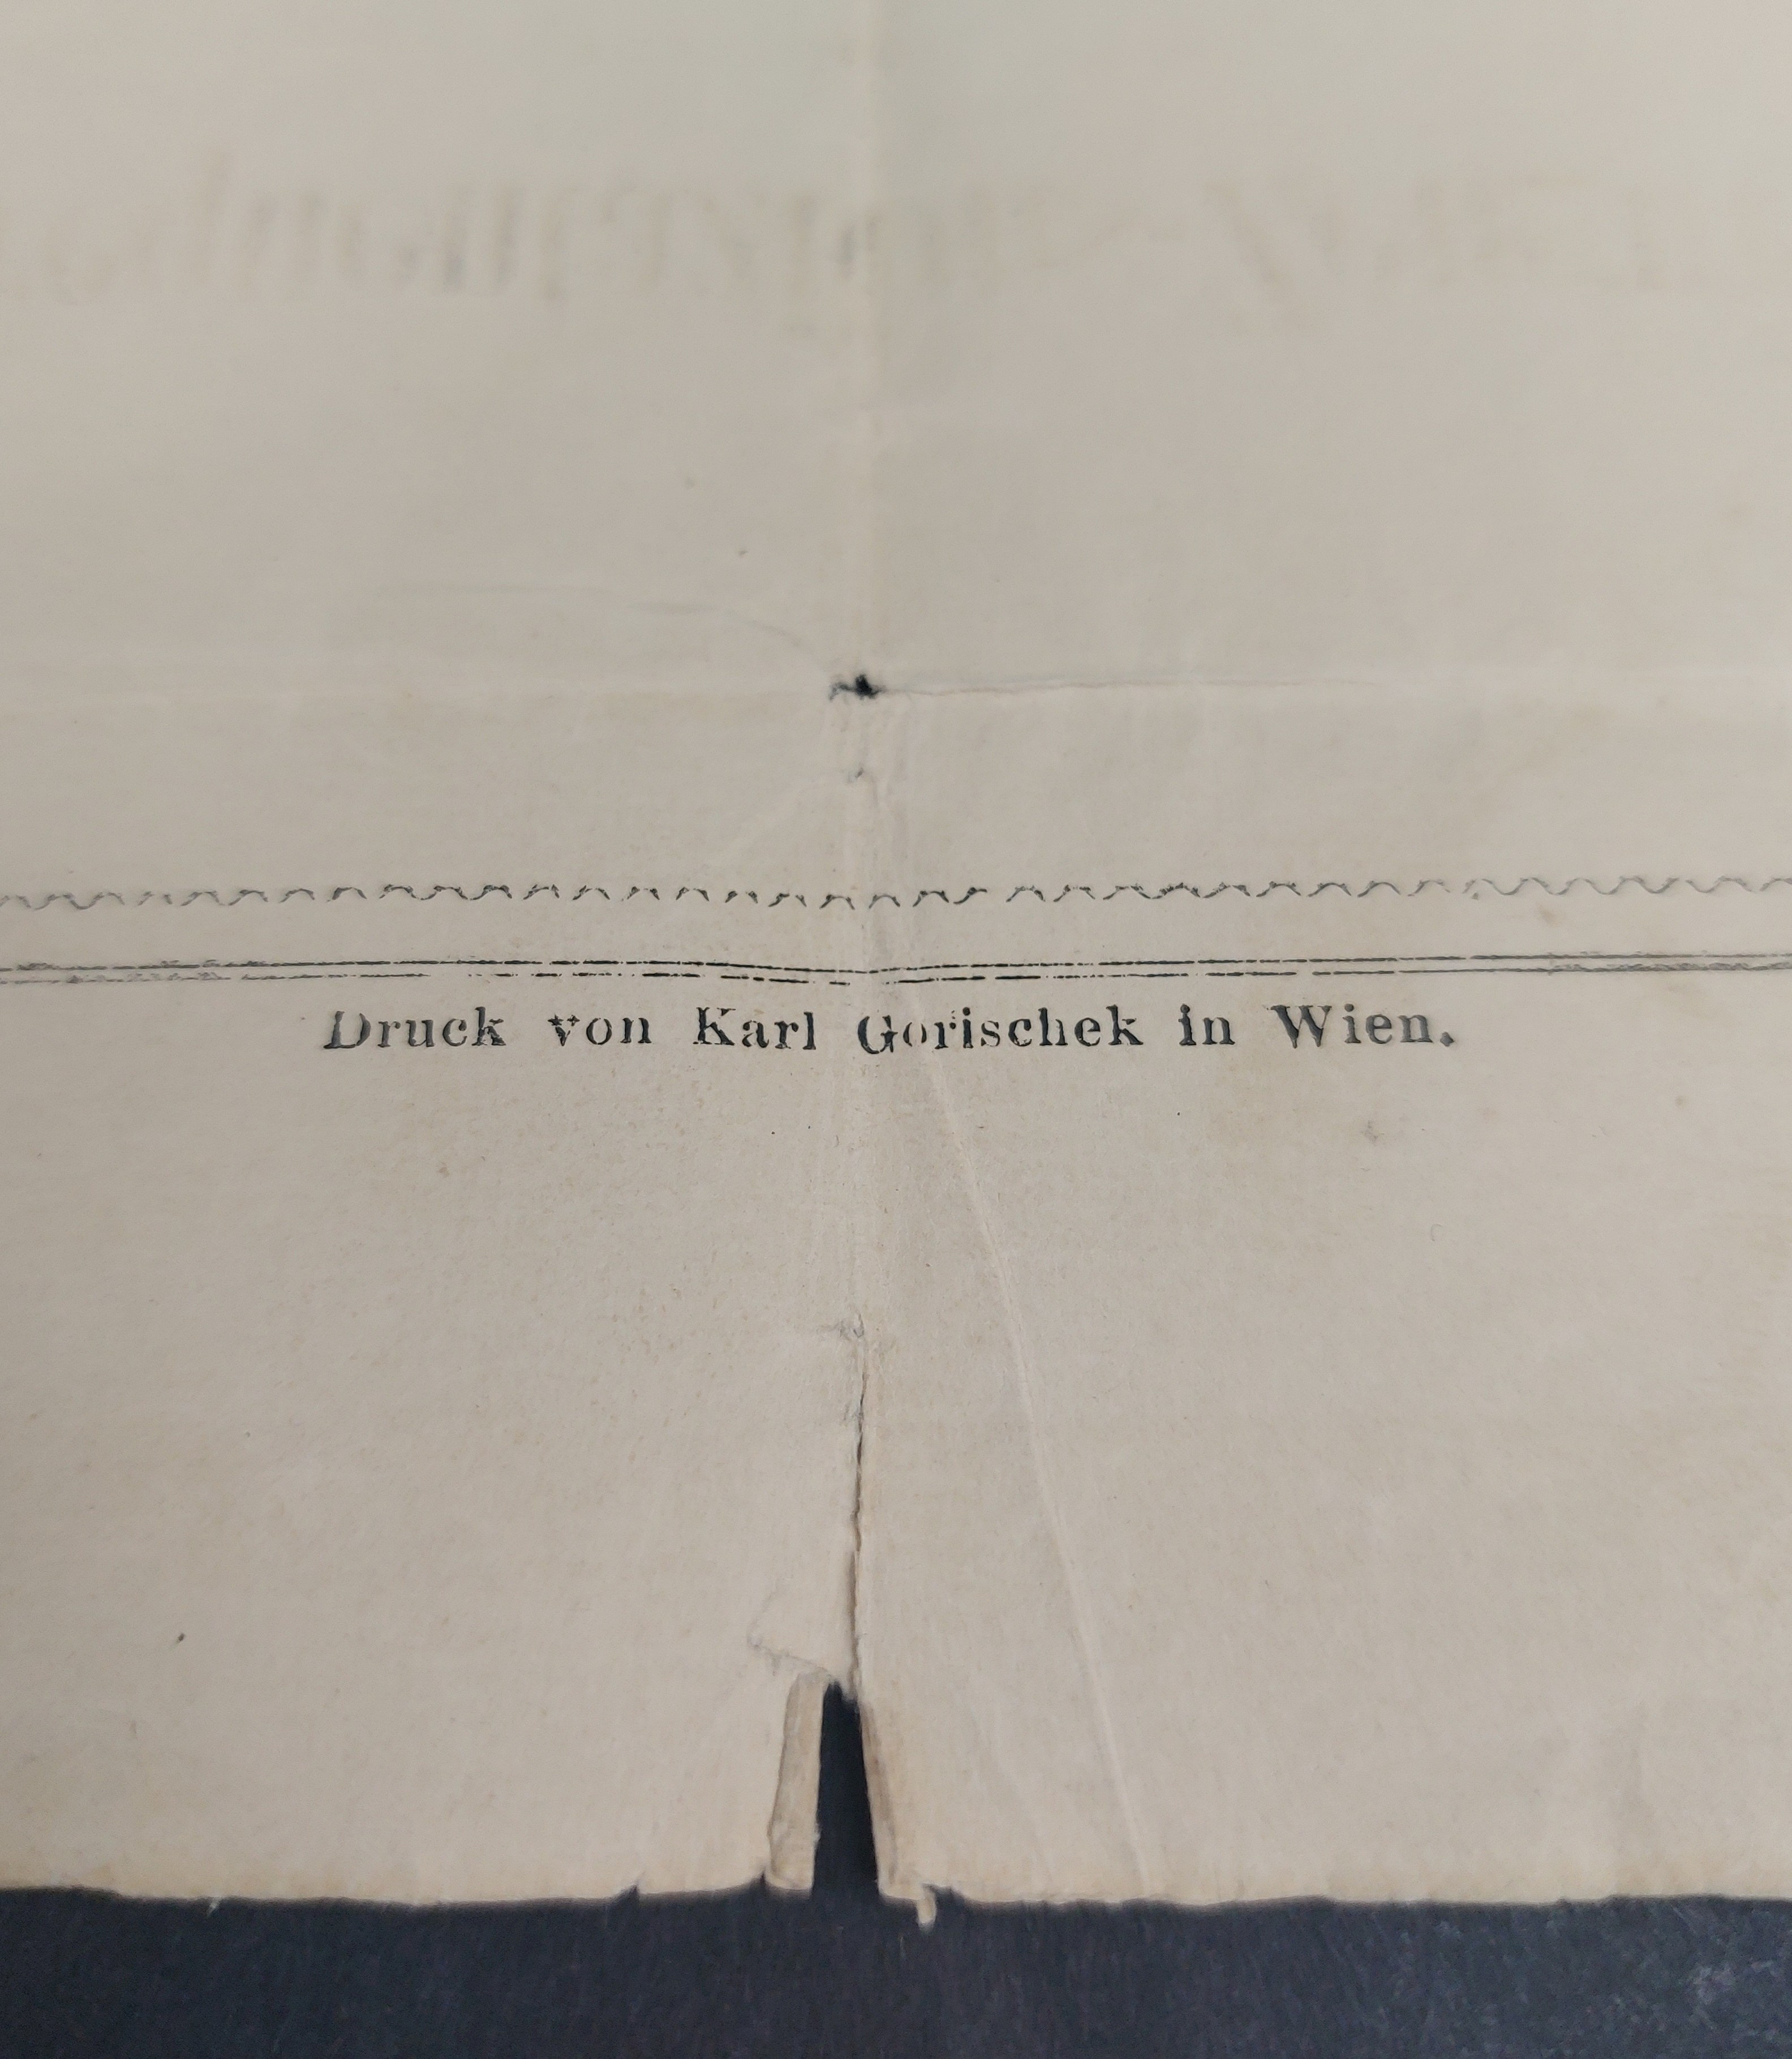 Druck von Karl Gorischek in Wien.